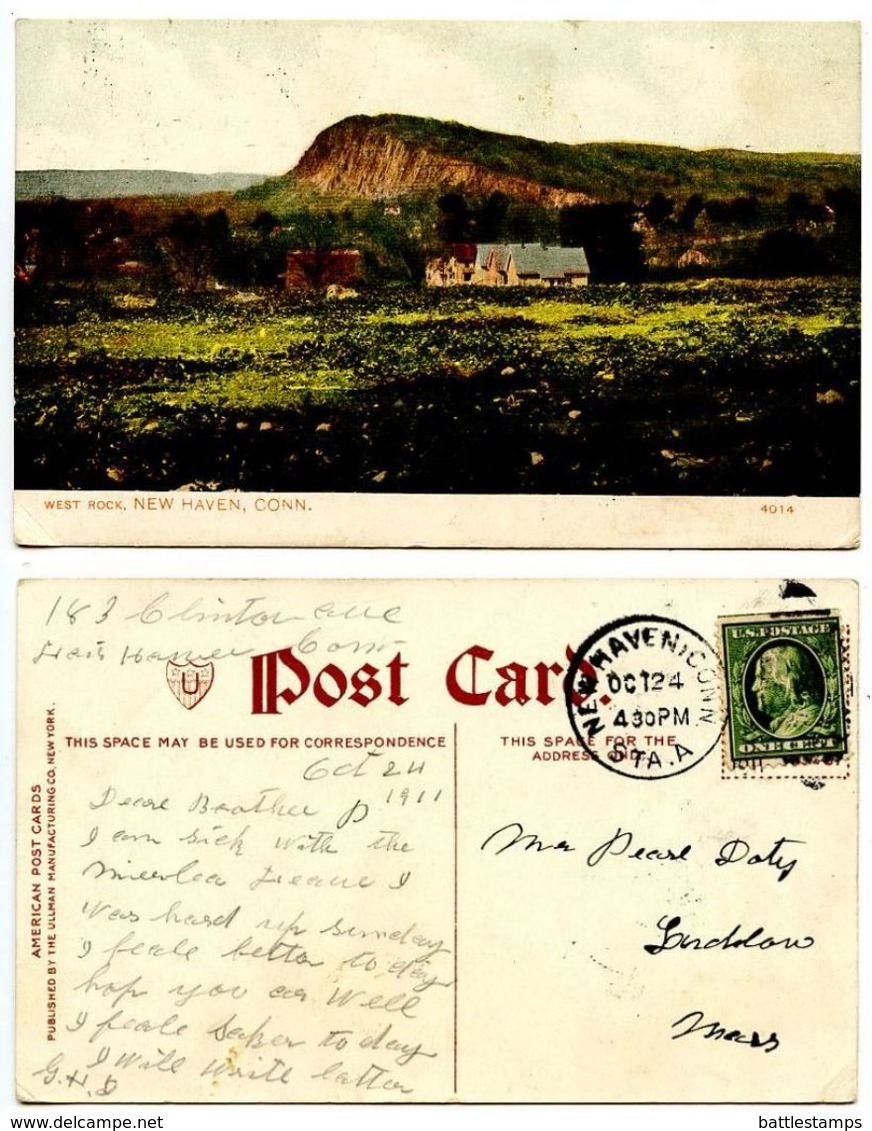 WEST ROCK, NEW HAVEN, CONN.
4014
183 Clinton ave
Haven Conn
U
Post Card.
THIS SPACE MAY BE USED FOR CORRESPONDENCE
THIS SPACE FOR THE
ADDRESS ONLY.
NEW HAVEN, CONN
OCT 24
4 30 PM
STA. A
U.S. POSTAGE
ONE CENT
AMERICAN POST CARDS
PUBLISHED BY THE ULLMAN MANUFACTURING CO. NEW YORK.
Oct 24
1911
Deare Brother P
I am sick with the
I
Was hard up sunday
I feale better to day
hop you ar Well
I feale to day
I Will Write latter
G. H. D
Mr Pearl Doty
Ludlow
Mass
www.delcampe.net
battlestamps